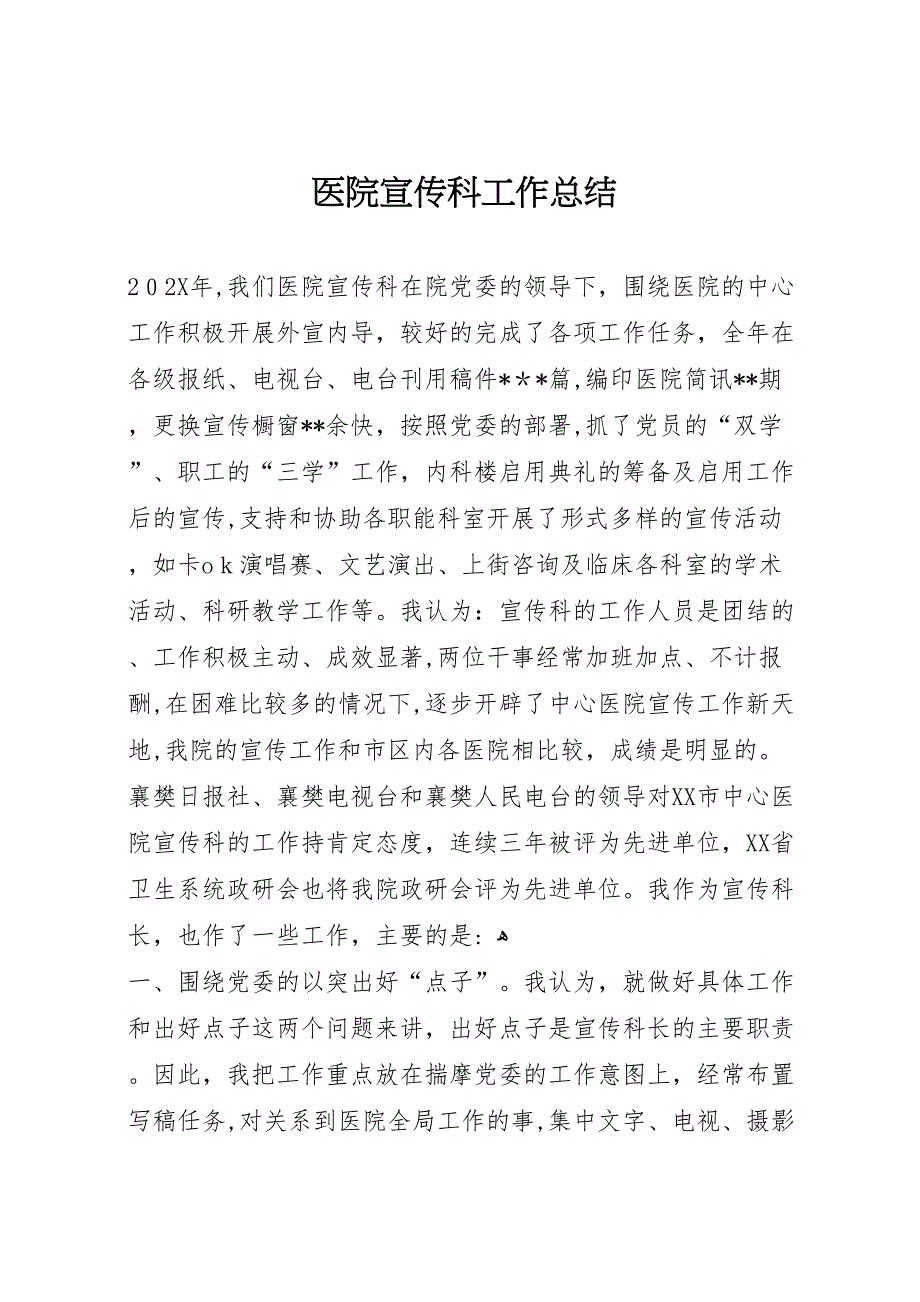 医院宣传科工作总结
202X年,我们医院宣传科在院党委的领导下，围绕医院的中心
工作积极开展外宣内导，较好的完成了各项工作任务，全年在
各级报纸、电视台、电台刊用稿件***篇,编印医院简讯**期
，更换宣传橱窗**余快，按照党委的部署,抓了党员的“双学
”、职工的“三学”工作，内科楼启用典礼的筹备及启用工作
后的宣传,支持和协助各职能科室开展了形式多样的宣传活动
，如卡ok演唱赛、文艺演出、上街咨询及临床各科室的学术
活动、科研教学工作等。我认为：宣传科的工作人员是团结的
、工作积极主动、成效显著,两位干事经常加班加点、不计报
酬,在困难比较多的情况下,逐步开辟了中心医院宣传工作新天
地,我院的宣传工作和市区内各医院相比较，成绩是明显的。
襄樊日报社、襄樊电视台和襄樊人民电台的领导对XX市中心医
院宣传科的工作持肯定态度，连续三年被评为先进单位，XX省
卫生系统政研会也将我院政研会评为先进单位。我作为宣传科
长，也作了一些工作，主要的是: ﻫ
一、围绕党委的以突出好“点子”。我认为，就做好具体工作
和出好点子这两个问题来讲，出好点子是宣传科长的主要职责
。因此，我把工作重点放在揣摩党委的工作意图上，经常布置
写稿任务,对关系到医院全局工作的事,集中文字、电视、摄影